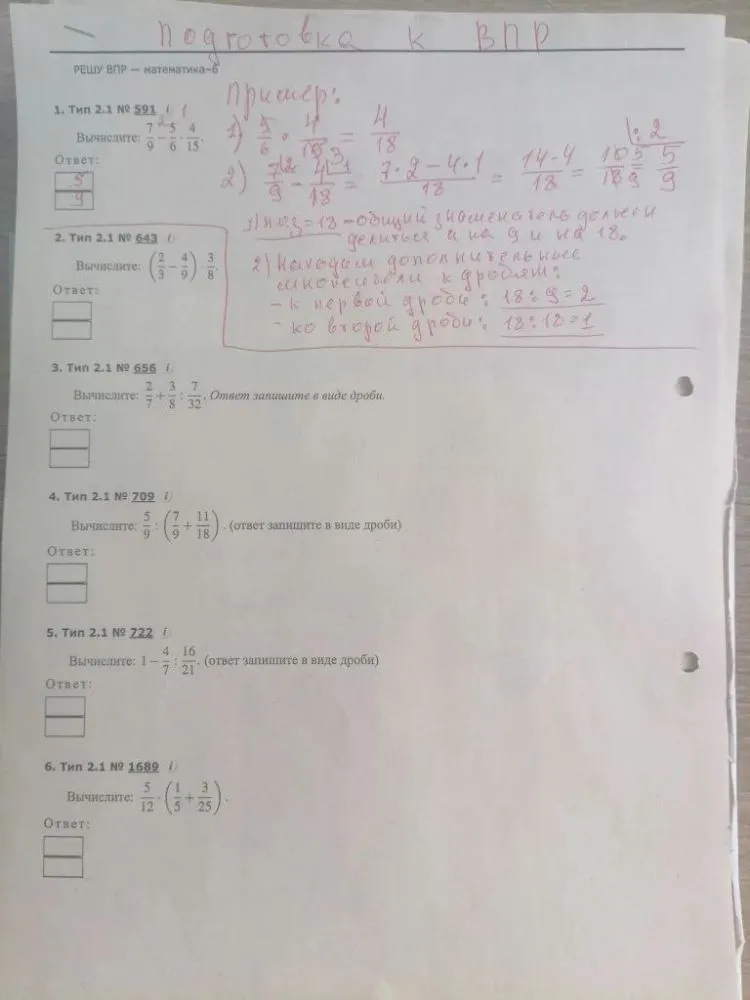 Подготовка к ВПР
РЕШУ ВПР — математика–6
Пример:
1. Тип 2.1 № 591 i 1
Вычислите: 7/9 − 5/6 · 4/15.
1) 5/6 · 4/15 = 4/18
Ответ:
5/9
2) 7/9 − 4/18 = (7·2 − 4·1)/18 = (14-4)/18 = 10/18 = 5/9
|:2
1) н.о.з = 18 – общий знаменатель должен
делиться и на 9 и на 18.
2) Находим дополнительные
множители к дробям:
– к первой дроби: 18:9=2
– ко второй дроби: 18:18=1
2. Тип 2.1 № 643 i
Вычислите: (2/3 − 4/9) · 3/8.
Ответ:
3. Тип 2.1 № 656 i
Вычислите: 2/7 + 3/8 : 7/32. Ответ запишите в виде дроби.
Ответ:
4. Тип 2.1 № 709 i
Вычислите: 5/9 : (7/9 + 11/18). (ответ запишите в виде дроби)
Ответ:
5. Тип 2.1 № 722 i
Вычислите: 1 − 4/7 : 16/21. (ответ запишите в виде дроби)
Ответ:
6. Тип 2.1 № 1689 i
Вычислите: 5/12 · (1/5 + 3/25).
Ответ: